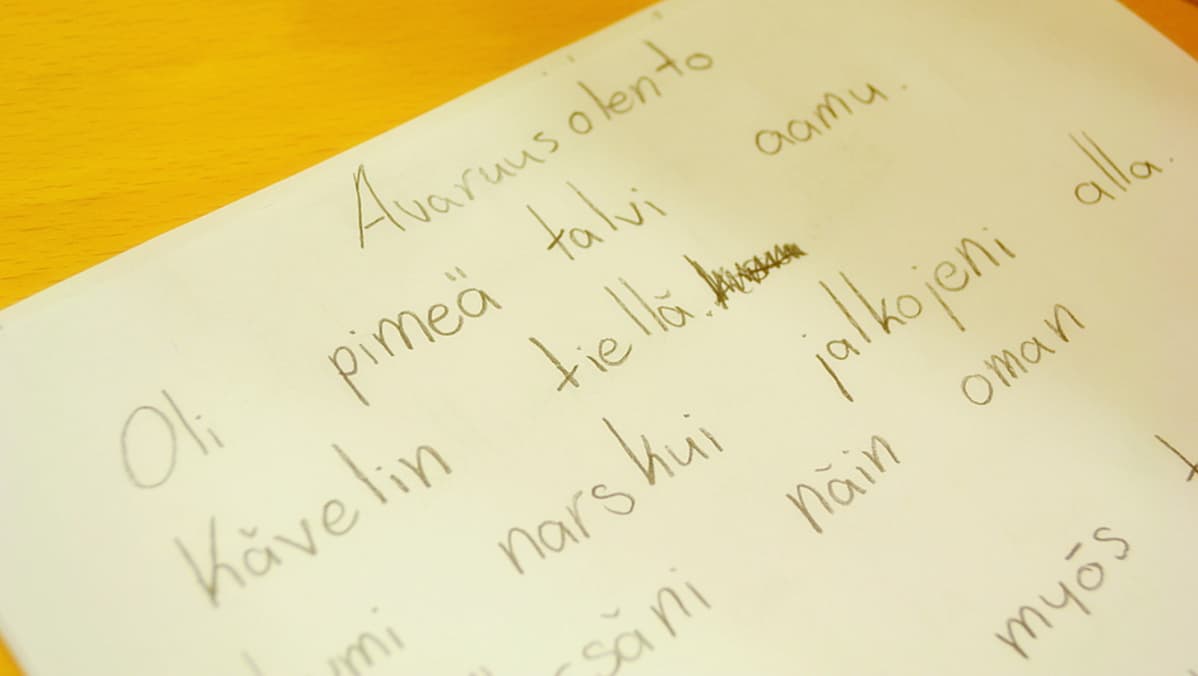 Avaruusolento
Oli pimeä talvi aamu.
Kävelin tiellä.
narskui jalkojeni alla.
näin oman
myös